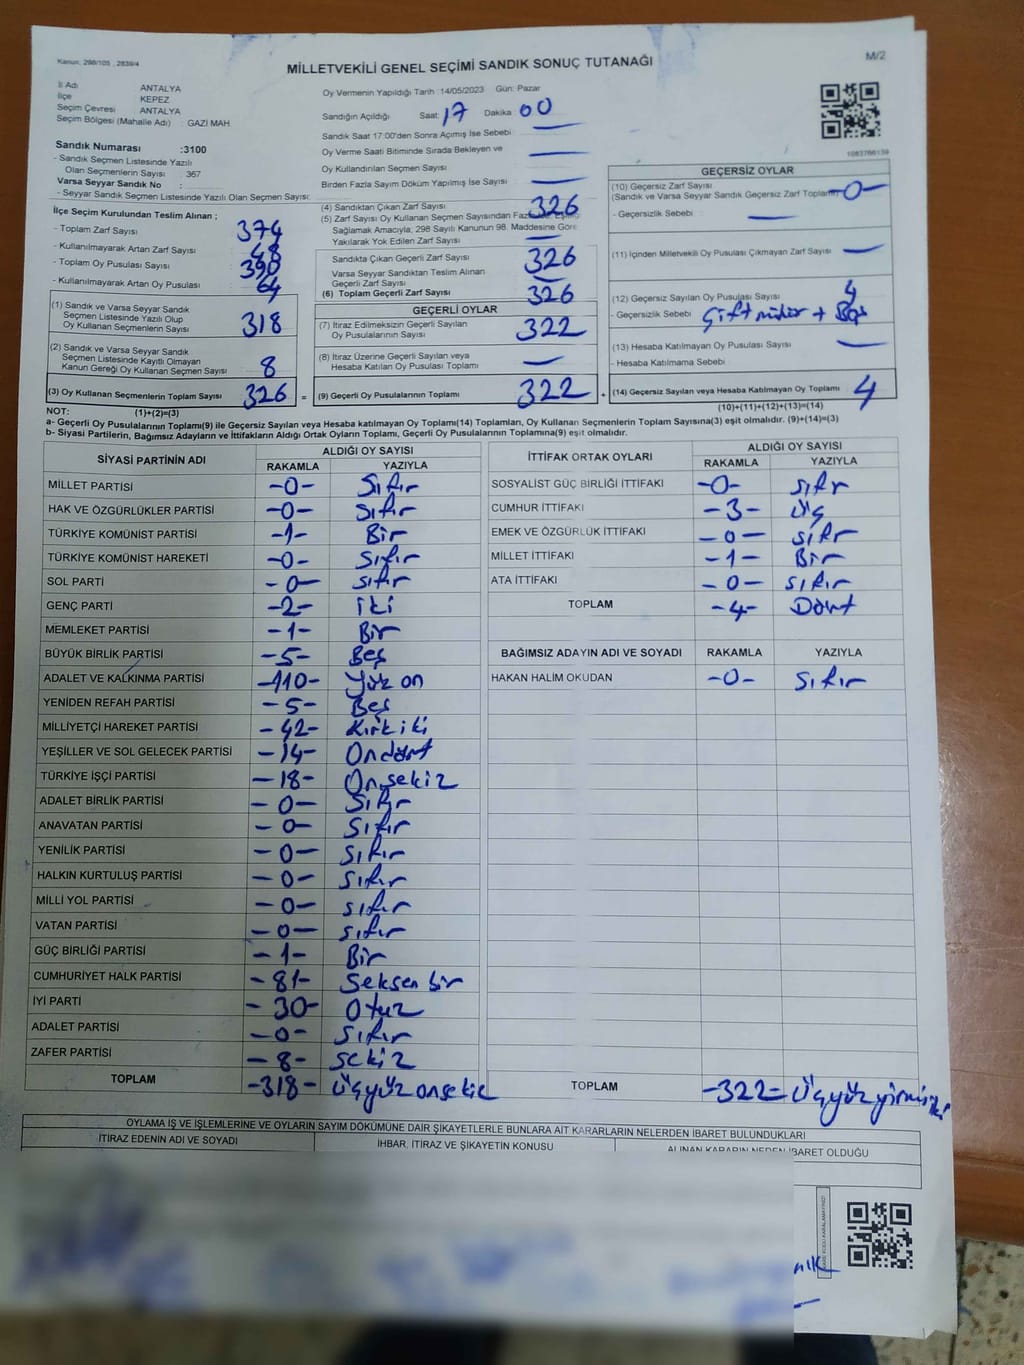 Kanun, 298/105 , 2839/4
M/2
MİLLETVEKİLİ GENEL SEÇİMİ SANDIK SONUÇ TUTANAĞI
İl Adı ANTALYA
İlçe KEPEZ
Seçim Çevresi ANTALYA
Seçim Bölgesi (Mahalle Adı) : GAZİ MAH.
Sandık Numarası :3100
- Sandık Seçmen Listesinde Yazılı
Olan Seçmenlerin Sayısı 367
Varsa Seyyar Sandık No :
- Seyyar Sandık Seçmen Listesinde Yazılı Olan Seçmen Sayısı:
İlçe Seçim Kurulundan Teslim Alınan ;
- Toplam Zarf Sayısı 374
- Kullanılmayarak Artan Zarf Sayısı 48
- Toplam Oy Pusulası Sayısı 390
- Kullanılmayarak Artan Oy Pusulası 64
(1) Sandık ve Varsa Seyyar Sandık
Seçmen Listesinde Yazılı Olup
Oy Kullanan Seçmenlerin Sayısı 318
(2) Sandık ve Varsa Seyyar Sandık
Seçmen Listesinde Kayıtlı Olmayan
Kanun Gereği Oy Kullanan Seçmen Sayısı 8
(3) Oy Kullanan Seçmenlerin Toplam Sayısı 326 =
Oy Vermenin Yapıldığı Tarih :14/05/2023 Gün: Pazar
Sandığın Açıldığı Saat : 17 Dakika : 00
Sandık Saat 17:00'den Sonra Açımış İse Sebebi : —
Oy Verme Saati Bitiminde Sırada Bekleyen ve
Oy Kullandırılan Seçmen Sayısı —
Birden Fazla Sayım Döküm Yapılmış İse Sayısı —
(4) Sandıktan Çıkan Zarf Sayısı 326
(5) Zarf Sayısı Oy Kullanan Seçmen Sayısından
Sağlamak Amacıyla, 298 Sayılı Kanunun 98. Maddesine Göre
Yakılarak Yok Edilen Zarf Sayısı —
Sandıkta Çıkan Geçerli Zarf Sayısı 326
Varsa Seyyar Sandıktan Teslim Alınan
Geçerli Zarf Sayısı —
(6) Toplam Geçerli Zarf Sayısı 326
GEÇERLİ OYLAR
(7) İtiraz Edilmeksizin Geçerli Sayılan
Oy Pusulalarının Sayısı 322
(8) İtiraz Üzerine Geçerli Sayılan veya
Hesaba Katılan Oy Pusulası Toplamı —
(9) Geçerli Oy Pusulalarının Toplamı 322 +
1083766159
GEÇERSİZ OYLAR
(10) Geçersiz Zarf Sayısı
(Sandık ve Varsa Seyyar Sandık Geçersiz Zarf Toplamı) -0-
- Geçersizlik Sebebi : —
(11) İçinden Milletvekili Oy Pusulası Çıkmayan Zarf Sayısı —
(12) Geçersiz Sayılan Oy Pusulası Sayısı 4
- Geçersizlik Sebebi Çift mühür + Boş
(13) Hesaba Katılmayan Oy Pusulası Sayısı —
- Hesaba Katılmama Sebebi :
(14) Geçersiz Sayılan veya Hesaba Katılmayan Oy Toplamı 4
NOT: (1)+(2)=(3) (10)+(11)+(12)+(13)=(14)
a- Geçerli Oy Pusulalarının Toplamı(9) ile Geçersiz Sayılan veya Hesaba katılmayan Oy Toplamı(14) Toplamları, Oy Kullanan Seçmenlerin Toplam Sayısına(3) eşit olmalıdır. (9)+(14)=(3)
b- Siyasi Partilerin, Bağımsız Adayların ve İttifakların Aldığı Ortak Oyların Toplamı, Geçerli Oy Pusulalarının Toplamına(9) eşit olmalıdır.
SİYASİ PARTİNİN ADI ALDIĞI OY SAYISI
RAKAMLA YAZIYLA
MİLLET PARTİSİ -0- Sıfır
HAK VE ÖZGÜRLÜKLER PARTİSİ -0- Sıfır
TÜRKİYE KOMÜNİST PARTİSİ -1- Bir
TÜRKİYE KOMÜNİST HAREKETİ -0- Sıfır
SOL PARTİ -0- sıfır
GENÇ PARTİ -2- iki
MEMLEKET PARTİSİ -1- Bir
BÜYÜK BİRLİK PARTİSİ -5- Beş
ADALET VE KALKINMA PARTİSİ -110- Yüz on
YENİDEN REFAH PARTİSİ -5- Beş
MİLLİYETÇİ HAREKET PARTİSİ -42- Kırk iki
YEŞİLLER VE SOL GELECEK PARTİSİ -14- Ondört
TÜRKİYE İŞÇİ PARTİSİ -18- On sekiz
ADALET BİRLİK PARTİSİ -0- Sıfır
ANAVATAN PARTİSİ -0- Sıfır
YENİLİK PARTİSİ -0- Sıfır
HALKIN KURTULUŞ PARTİSİ -0- Sıfır
MİLLİ YOL PARTİSİ -0- sıfır
VATAN PARTİSİ -0- sıfır
GÜÇ BİRLİĞİ PARTİSİ -1- Bir
CUMHURİYET HALK PARTİSİ -81- Seksen bir
İYİ PARTİ -30- Otuz
ADALET PARTİSİ -0- Sıfır
ZAFER PARTİSİ -8- sekiz
TOPLAM -318- Üçyüz onsekiz
İTTİFAK ORTAK OYLARI ALDIĞI OY SAYISI
RAKAMLA YAZIYLA
SOSYALİST GÜÇ BİRLİĞİ İTTİFAKI -0- sıfır
CUMHUR İTTİFAKI -3- Üç
EMEK VE ÖZGÜRLÜK İTTİFAKI -0- sıfır
MİLLET İTTİFAKI -1- Bir
ATA İTTİFAKI -0- sıfır
TOPLAM -4- Dört
BAĞIMSIZ ADAYIN ADI VE SOYADI RAKAMLA YAZIYLA
HAKAN HALİM OKUDAN -0- Sıfır
TOPLAM -322- Üçyüz yirmi iki
OYLAMA İŞ VE İŞLEMLERİNE VE OYLARIN SAYIM DÖKÜMÜNE DAİR ŞİKAYETLERLE BUNLARA AİT KARARLARIN NELERDEN İBARET BULUNDUKLARI
İTİRAZ EDENİN ADI VE SOYADI İHBAR, İTİRAZ VE ŞİKAYETİN KONUSU ALINAN KARARIN NEDEN İBARET OLDUĞU